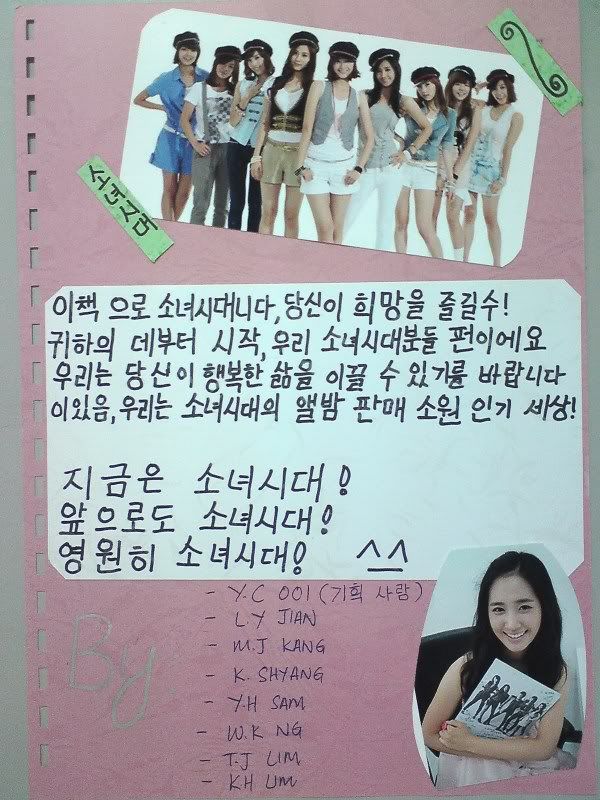 소녀시대
이책 으로 소녀시대니다,당신이 희망을 즐길수!
귀하의 데부터 시작,우리 소녀시대분들 편이에요
우리는 당신이 행복한 삶을 이끌 수 있기를 바랍니다
이있음,우리는 소녀시대의 앨밤 판매 소원 인기 세상!
지금은 소녀시대!
앞으로도 소녀시대!
영원히 소녀시대! ^^
By
- Y.C 001 (기획 사람)
- L.Y JIAN
- M.J KANG
- K. SHYANG
- Y.H SAM
- W.K NG
- T.J LIM
- KH LIM